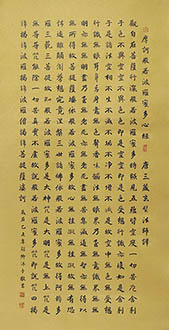 摩訶般若波羅蜜多心經 唐三藏玄奘法師譯
觀自在菩薩行深般若波羅蜜多時照見五蘊皆空度一切苦厄舍利
子色不異空空不異色色即是空空即是色受想行識亦復如是舍利
子是諸法空相不生不滅不垢不淨不增不減是故空中無色無受想
行識無眼耳鼻舌身意無色聲香味觸法無眼界乃至無意識界無無
明亦無無明盡乃至無老死亦無老死盡無苦集滅道無智亦無得以
無所得故菩提薩埵依般若波羅蜜多故心無罣礙無罣礙故無有恐
怖遠離顛倒夢想究竟涅槃三世諸佛依般若波羅蜜多故得阿耨多
羅三藐三菩提故知般若波羅蜜多是大神咒是大明咒是無上咒是無
等等咒能除一切苦真實不虛故說般若波羅蜜多咒即說咒曰揭
諦揭諦波羅揭諦波羅僧揭諦菩提薩婆訶